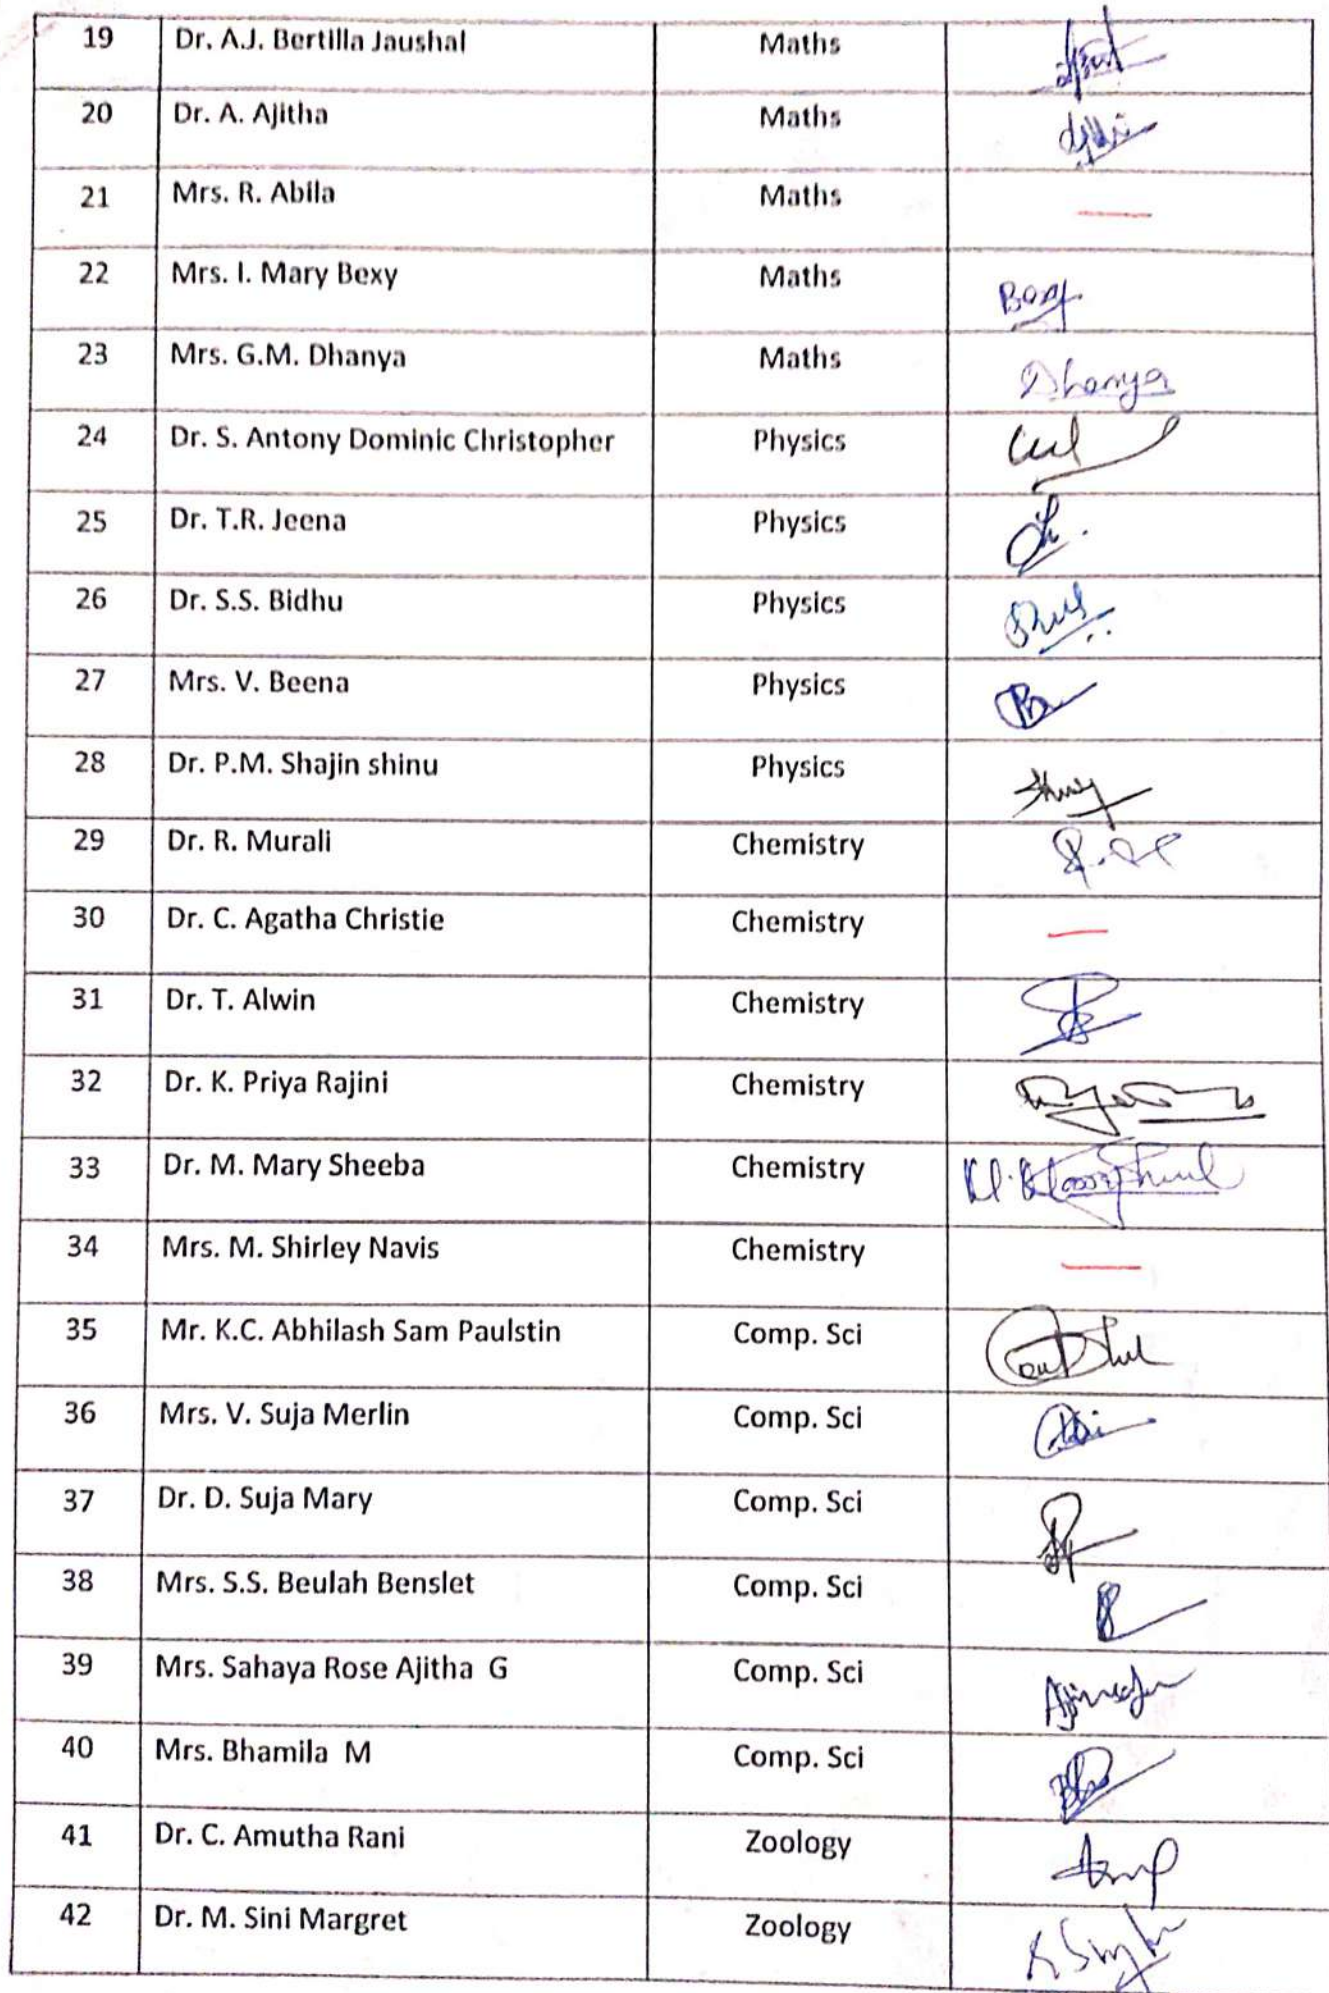 19 Dr. A.J. Bertilla Jaushal Maths
20 Dr. A. Ajitha Maths
21 Mrs. R. Abila Maths —
22 Mrs. I. Mary Bexy Maths Bexy
23 Mrs. G.M. Dhanya Maths Dhanya
24 Dr. S. Antony Dominic Christopher Physics
25 Dr. T.R. Jeena Physics
26 Dr. S.S. Bidhu Physics
27 Mrs. V. Beena Physics
28 Dr. P.M. Shajin shinu Physics
29 Dr. R. Murali Chemistry
30 Dr. C. Agatha Christie Chemistry —
31 Dr. T. Alwin Chemistry
32 Dr. K. Priya Rajini Chemistry
33 Dr. M. Mary Sheeba Chemistry
34 Mrs. M. Shirley Navis Chemistry —
35 Mr. K.C. Abhilash Sam Paulstin Comp. Sci
36 Mrs. V. Suja Merlin Comp. Sci
37 Dr. D. Suja Mary Comp. Sci
38 Mrs. S.S. Beulah Benslet Comp. Sci
39 Mrs. Sahaya Rose Ajitha G Comp. Sci
40 Mrs. Bhamila M Comp. Sci
41 Dr. C. Amutha Rani Zoology
42 Dr. M. Sini Margret Zoology